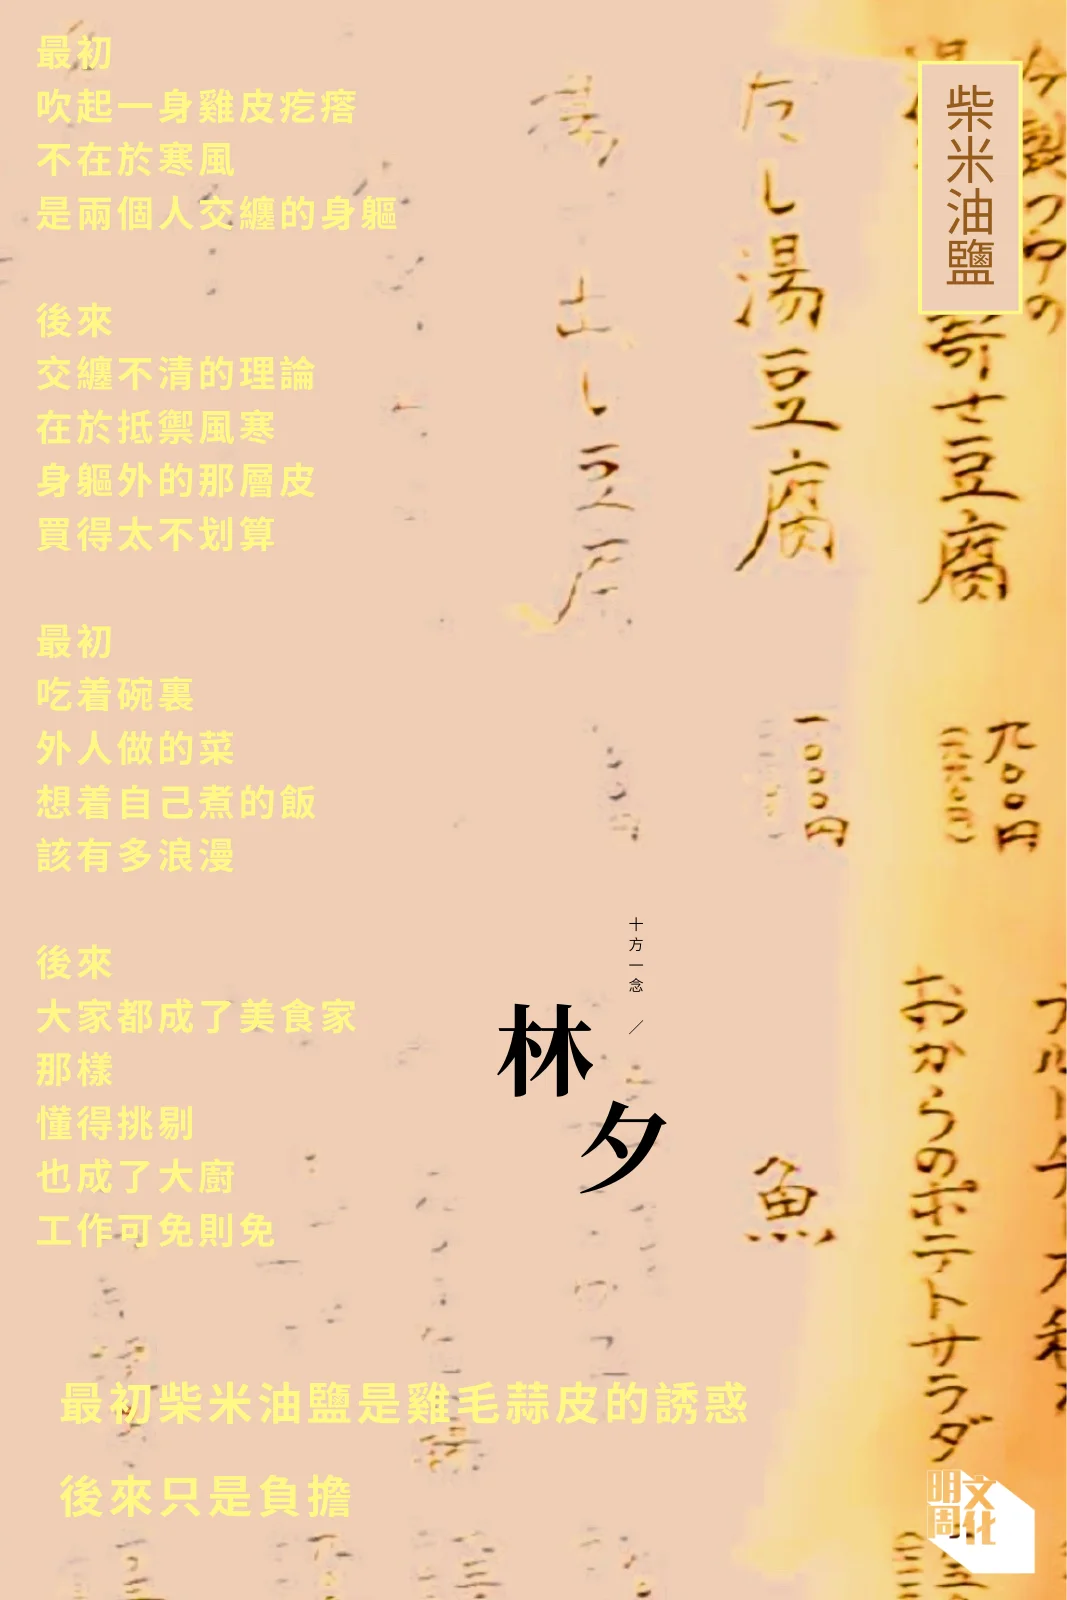 柴米油鹽
最初
吹起一身雞皮疙瘩
不在於寒風
是兩個人交纏的身軀
後來
交纏不清的理論
在於抵禦風寒
身軀外的那層皮
買得太不划算
最初
吃着碗裏
外人做的菜
想着自己煮的飯
該有多浪漫
後來
大家都成了美食家
那樣
懂得挑剔
也成了大廚
工作可免則免
最初柴米油鹽是雞毛蒜皮的誘惑
後來只是負擔
十方一念 /
林夕
寄せ豆腐
九〇〇円
だし湯豆腐
一〇〇〇円
出し豆腐
おからのポテトサラダ
魚
明周文化